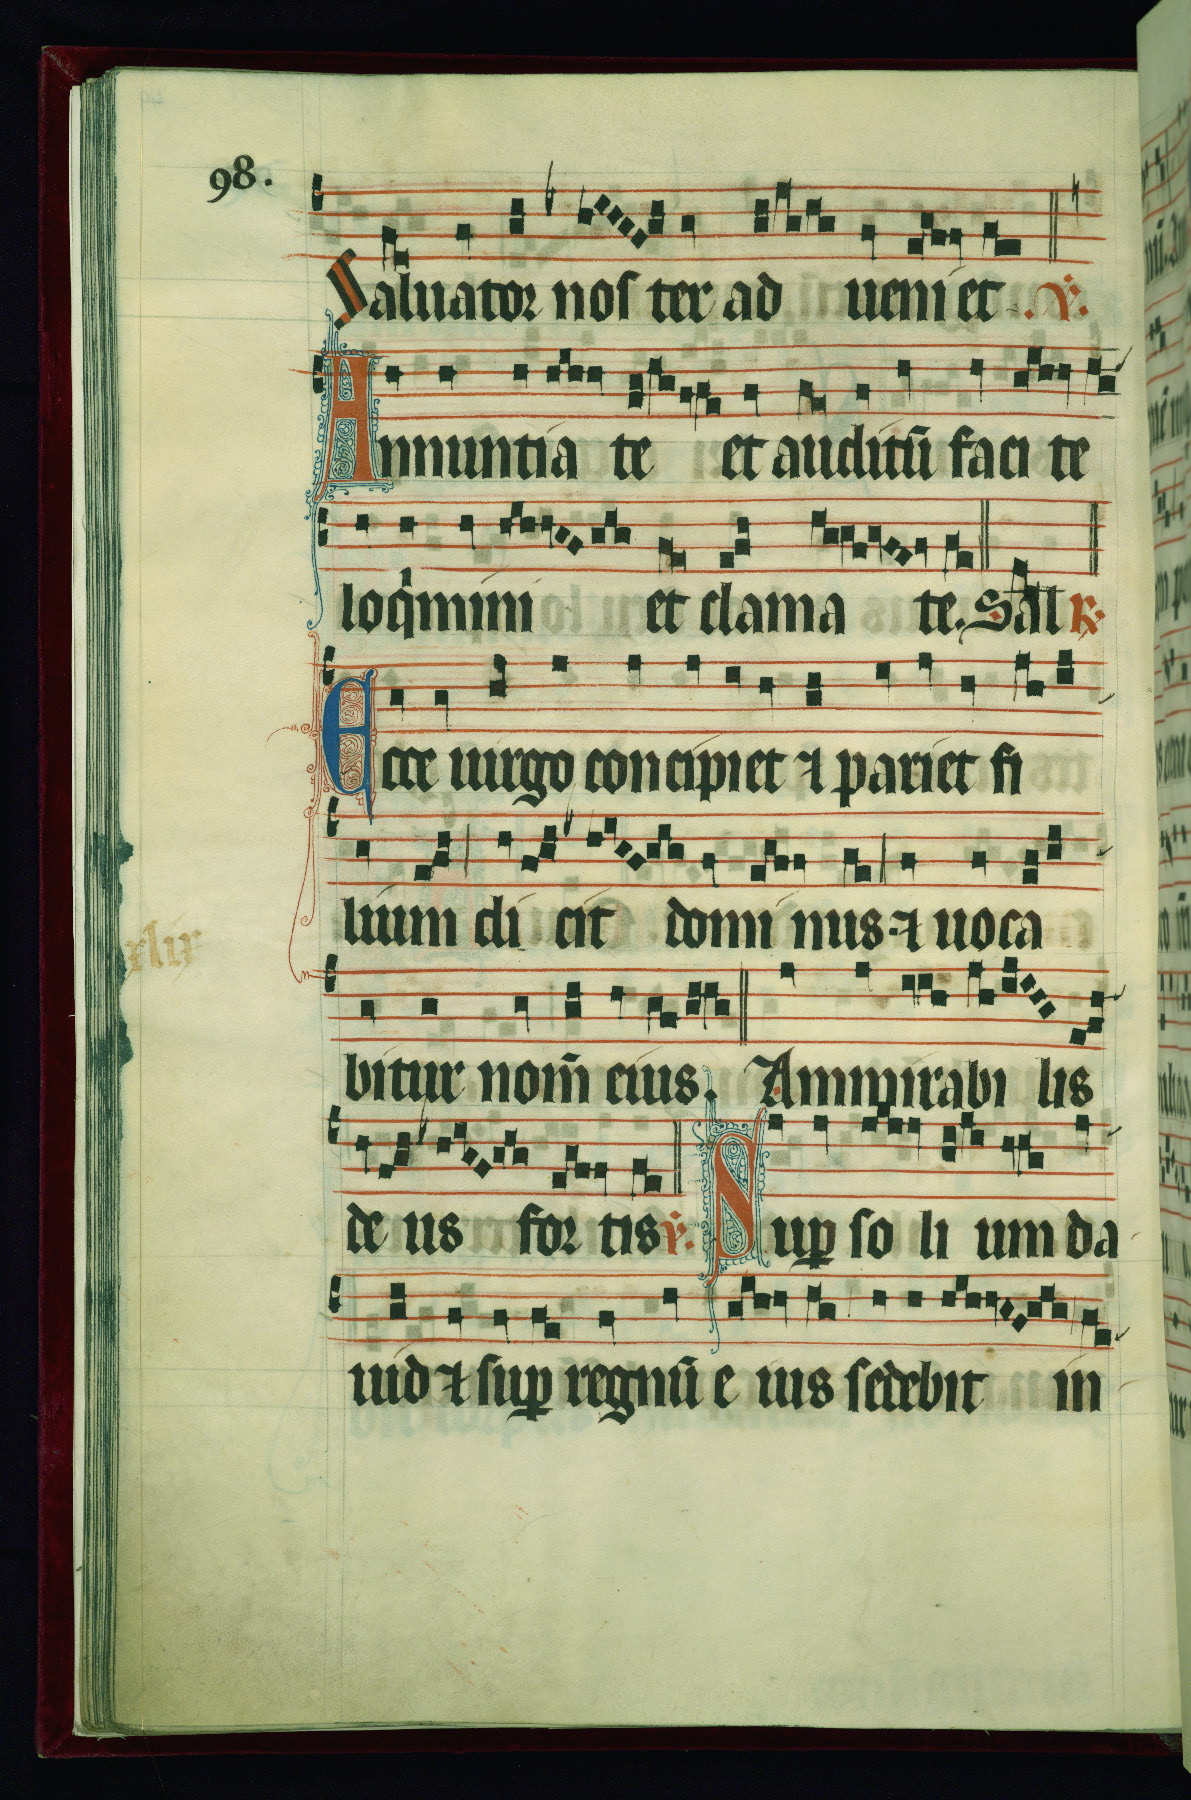 98.
Saluator nos ter ad ueni et .V.
Annuntia te et auditū faci te
loq̇mini et clama te. Sal R.
Ecce uirgo concipiet ⁊ pariet fi
lium di cit domi nus. ⁊ uoca
bitur nom̄ eius. Ammirabi lis
de us for tis V. Suꝑ so li um da
uid ⁊ suꝑ regnū e ius sedebit in
xlix